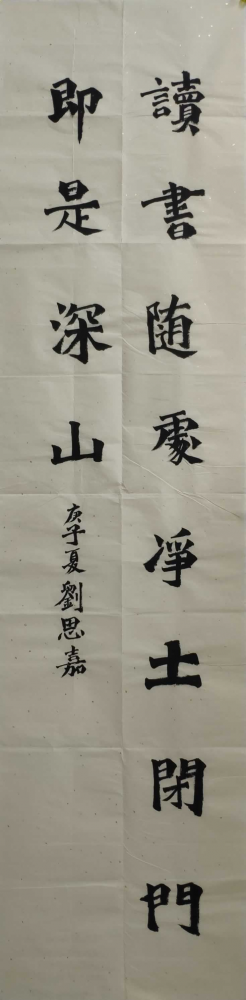 讀書随處凈土閉門
即是深山
庚子夏劉思嘉